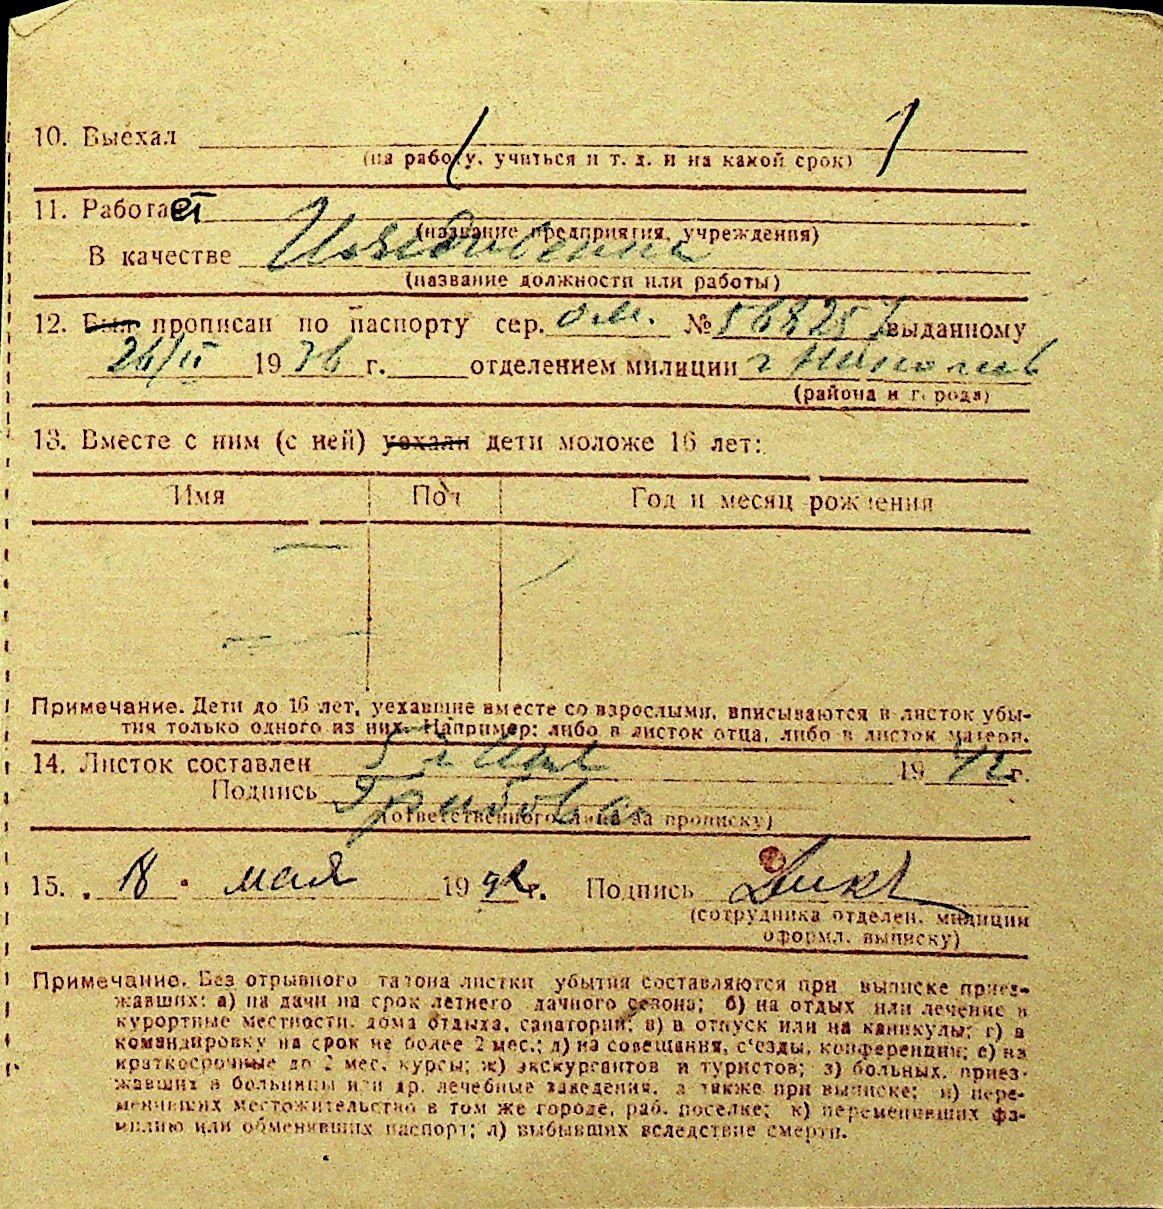 10. Выехал
(на работу, учиться и т. д. и на какой срок)
11. Работает
(название предприятия, учреждения)
В качестве Иждивенка
(название должности или работы)
12. Был прописан по паспорту сер. № 568257 выданному
26/II 1936 г. отделением милиции г Никополь
(района и города)
13. Вместе с ним (с ней) уехали дети моложе 16 лет:
Имя Пол Год и месяц рождения
Примечание. Дети до 16 лет, уехавшие вместе со взрослыми, вписываются в листок убы-
тия только одного из них. Например: либо в листок отца, либо в листок матери.
14. Листок составлен 5 го Мая 1942г.
Подпись
(ответственного лица за прописку)
15. 18 мая 1942г. Подпись
(сотрудника отделен. милиции
оформл. выписку)
Примечание. Без отрывного талона листки убытия составляются при выписке приез-
жавших: а) на дачи на срок летнего дачного сезона; б) на отдых или лечение в
курортные местности, дома отдыха, санатории; в) в отпуск или на каникулы; г) в
командировку на срок не более 2 мес.; д) на совещания, с'езды, конференции; е) на
краткосрочные до 2 мес. курсы; ж) экскурсантов и туристов; з) больных, приез-
жавших в больницы или др. лечебные заведения, а также при выписке; и) пере-
менивших местожительство в том же городе, раб. поселке; к) переменивших фа-
милию или обменявших паспорт; л) выбывших вследствие смерти.